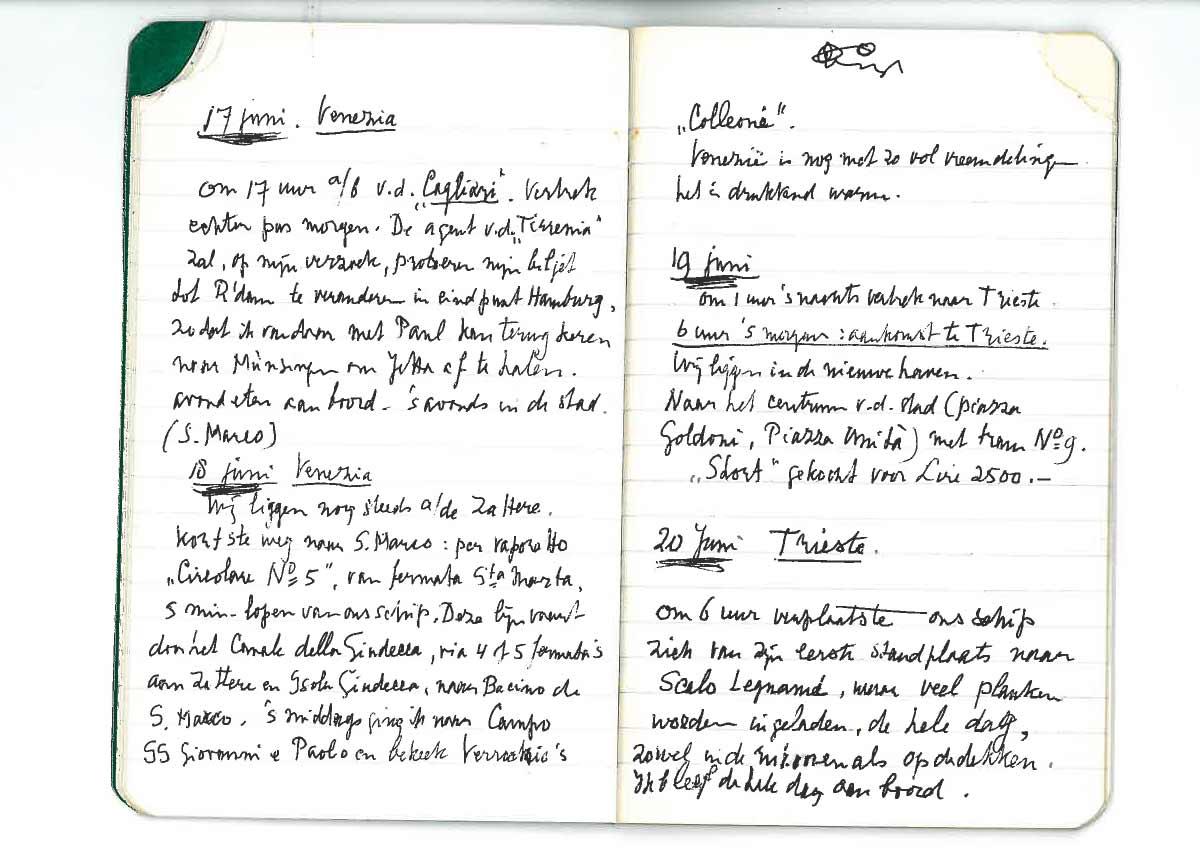 17 juni. Venezia
Om 17 uur a/b v.d. "Cagliari". Vertrek
echter pas morgen. De agent v.d. "Tirrenia"
zal, op mijn verzoek, proberen mijn biljet
tot R'dam te veranderen in eindpunt Hamburg,
zodat ik vandaar met Paul kan terugkeren
naar Münsingen om Jetta af te halen.
avondeten aan boord - 's avonds in de stad.
(S. Marco)
18 juni Venezia
Wij liggen nog steeds a/de Zattere.
Kortste weg naar S. Marco: per vaporetto
„Circolare No 5", van fermata Sta Marta,
5 min. lopen van ons schip. Deze lijn vaart
door het Canale della Giudecca, via 4 of 5 fermata's
aan Zattere en Isola Giudecca, naar Bacino di
S. Marco. 's middags ging ik naar Campo
SS Giovanni e Paolo en bekeek Verrochio's
„Colleoni".
Venezië is nog niet zo vol vreemdelingen
het is drukkend warm.
19 juni
om 1 uur 's nachts vertrek naar Trieste.
6 uur 's morgens: aankomst te Trieste.
Wij liggen in de nieuwe haven.
Naar het centrum v.d. stad (piazza
Goldoni, Piazza Unità) met tram No 9.
„Short" gekocht voor Lire 2500.-
20 Juni Trieste.
om 6 uur verplaatste ons schip
zich van zijn eerste standplaats naar
Scalo Legnami, waar veel planken
worden ingeladen, de hele dag,
zowel in de ruimen als op de dekken.
Ik bleef de hele dag aan boord.